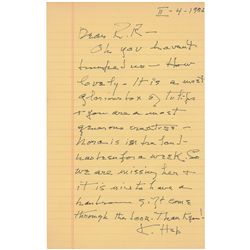 II - 4 - 1982
Dear R.R —
Oh you haven't
— How
lovely - It is a most
glorious box of tulips
& you are a most
generous creature -
Nora is in
has been for a week. So
we are missing her &
it is nice to have a
come
through the door. Thank you!
K. Hep